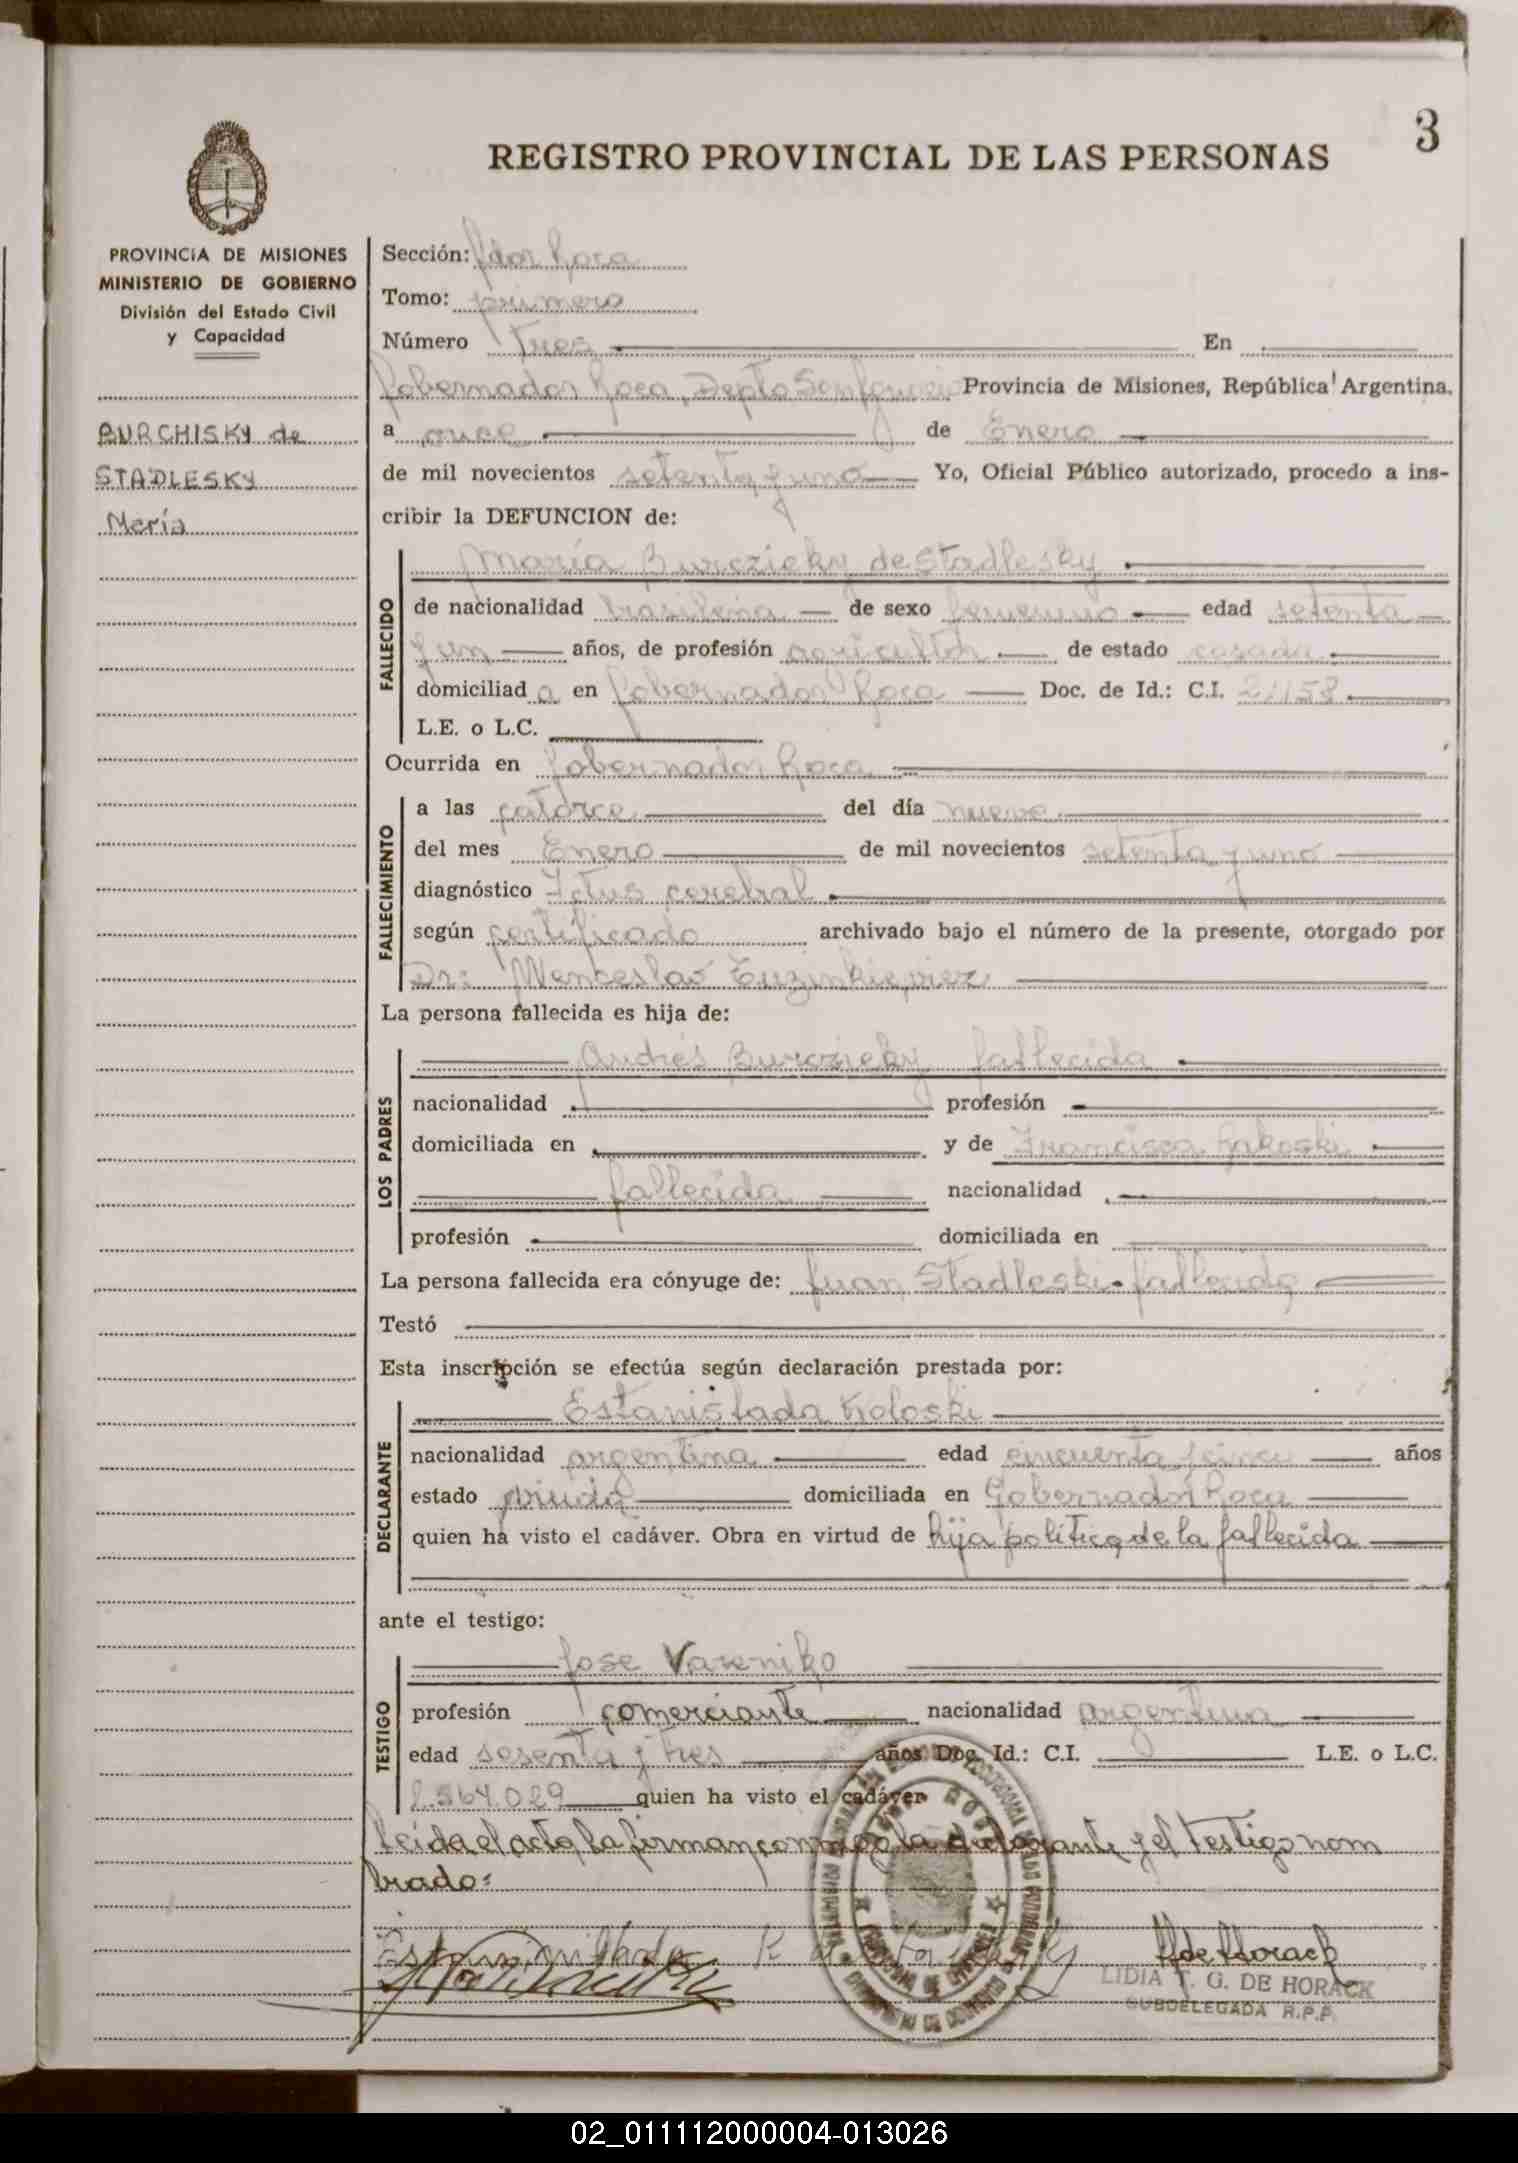 3
REGISTRO PROVINCIAL DE LAS PERSONAS
PROVINCIA DE MISIONES
MINISTERIO DE GOBIERNO
División del Estado Civil
y Capacidad
BURCHISKY de
STADLESKY
María
Sección: Gdor Roca
Tomo: primero
Número tres En
Gobernador Roca, Depto San Ignacio Provincia de Misiones, República Argentina.
a once de Enero
de mil novecientos setenta y uno Yo, Oficial Público autorizado, procedo a ins-
cribir la DEFUNCION de:
María Burczicky de Stadlesky
FALLECIDO
de nacionalidad brasileña de sexo femenino edad setenta
y un años, de profesión agricultor de estado casada
domiciliad a en Gobernador Roca Doc. de Id.: C.I. 21158
L.E. o L.C.
Ocurrida en Gobernador Roca
FALLECIMIENTO
a las catorce del día nueve
del mes Enero de mil novecientos setenta y uno
diagnóstico Ictus cerebral
según certificado archivado bajo el número de la presente, otorgado por
Dr: Wenceslao
La persona fallecida es hija de:
LOS PADRES
Andrés Burczicky fallecida
nacionalidad profesión
domiciliada en y de Francisca
fallecida nacionalidad
profesión domiciliada en
La persona fallecida era cónyuge de: Juan Stadleski fallecido
Testó
Esta inscripción se efectúa según declaración prestada por:
DECLARANTE
Estanislada Koloski
nacionalidad argentina edad cincuenta y cinco años
estado viuda domiciliada en Gobernador Roca
quien ha visto el cadáver. Obra en virtud de hija política de la fallecida
ante el testigo:
TESTIGO
Jose Vareniko
profesión comerciante nacionalidad argentina
edad sesenta y tres años Doc. Id.: C.I. L.E. o L.C.
2.564.029 quien ha visto el cadáver
Leída el acta, la firman conmigo la declarante y el testigo nom
brado:
LIDIA T. G. DE HORACK
SUBDELEGADA R.P.P.
02_011112000004-013026